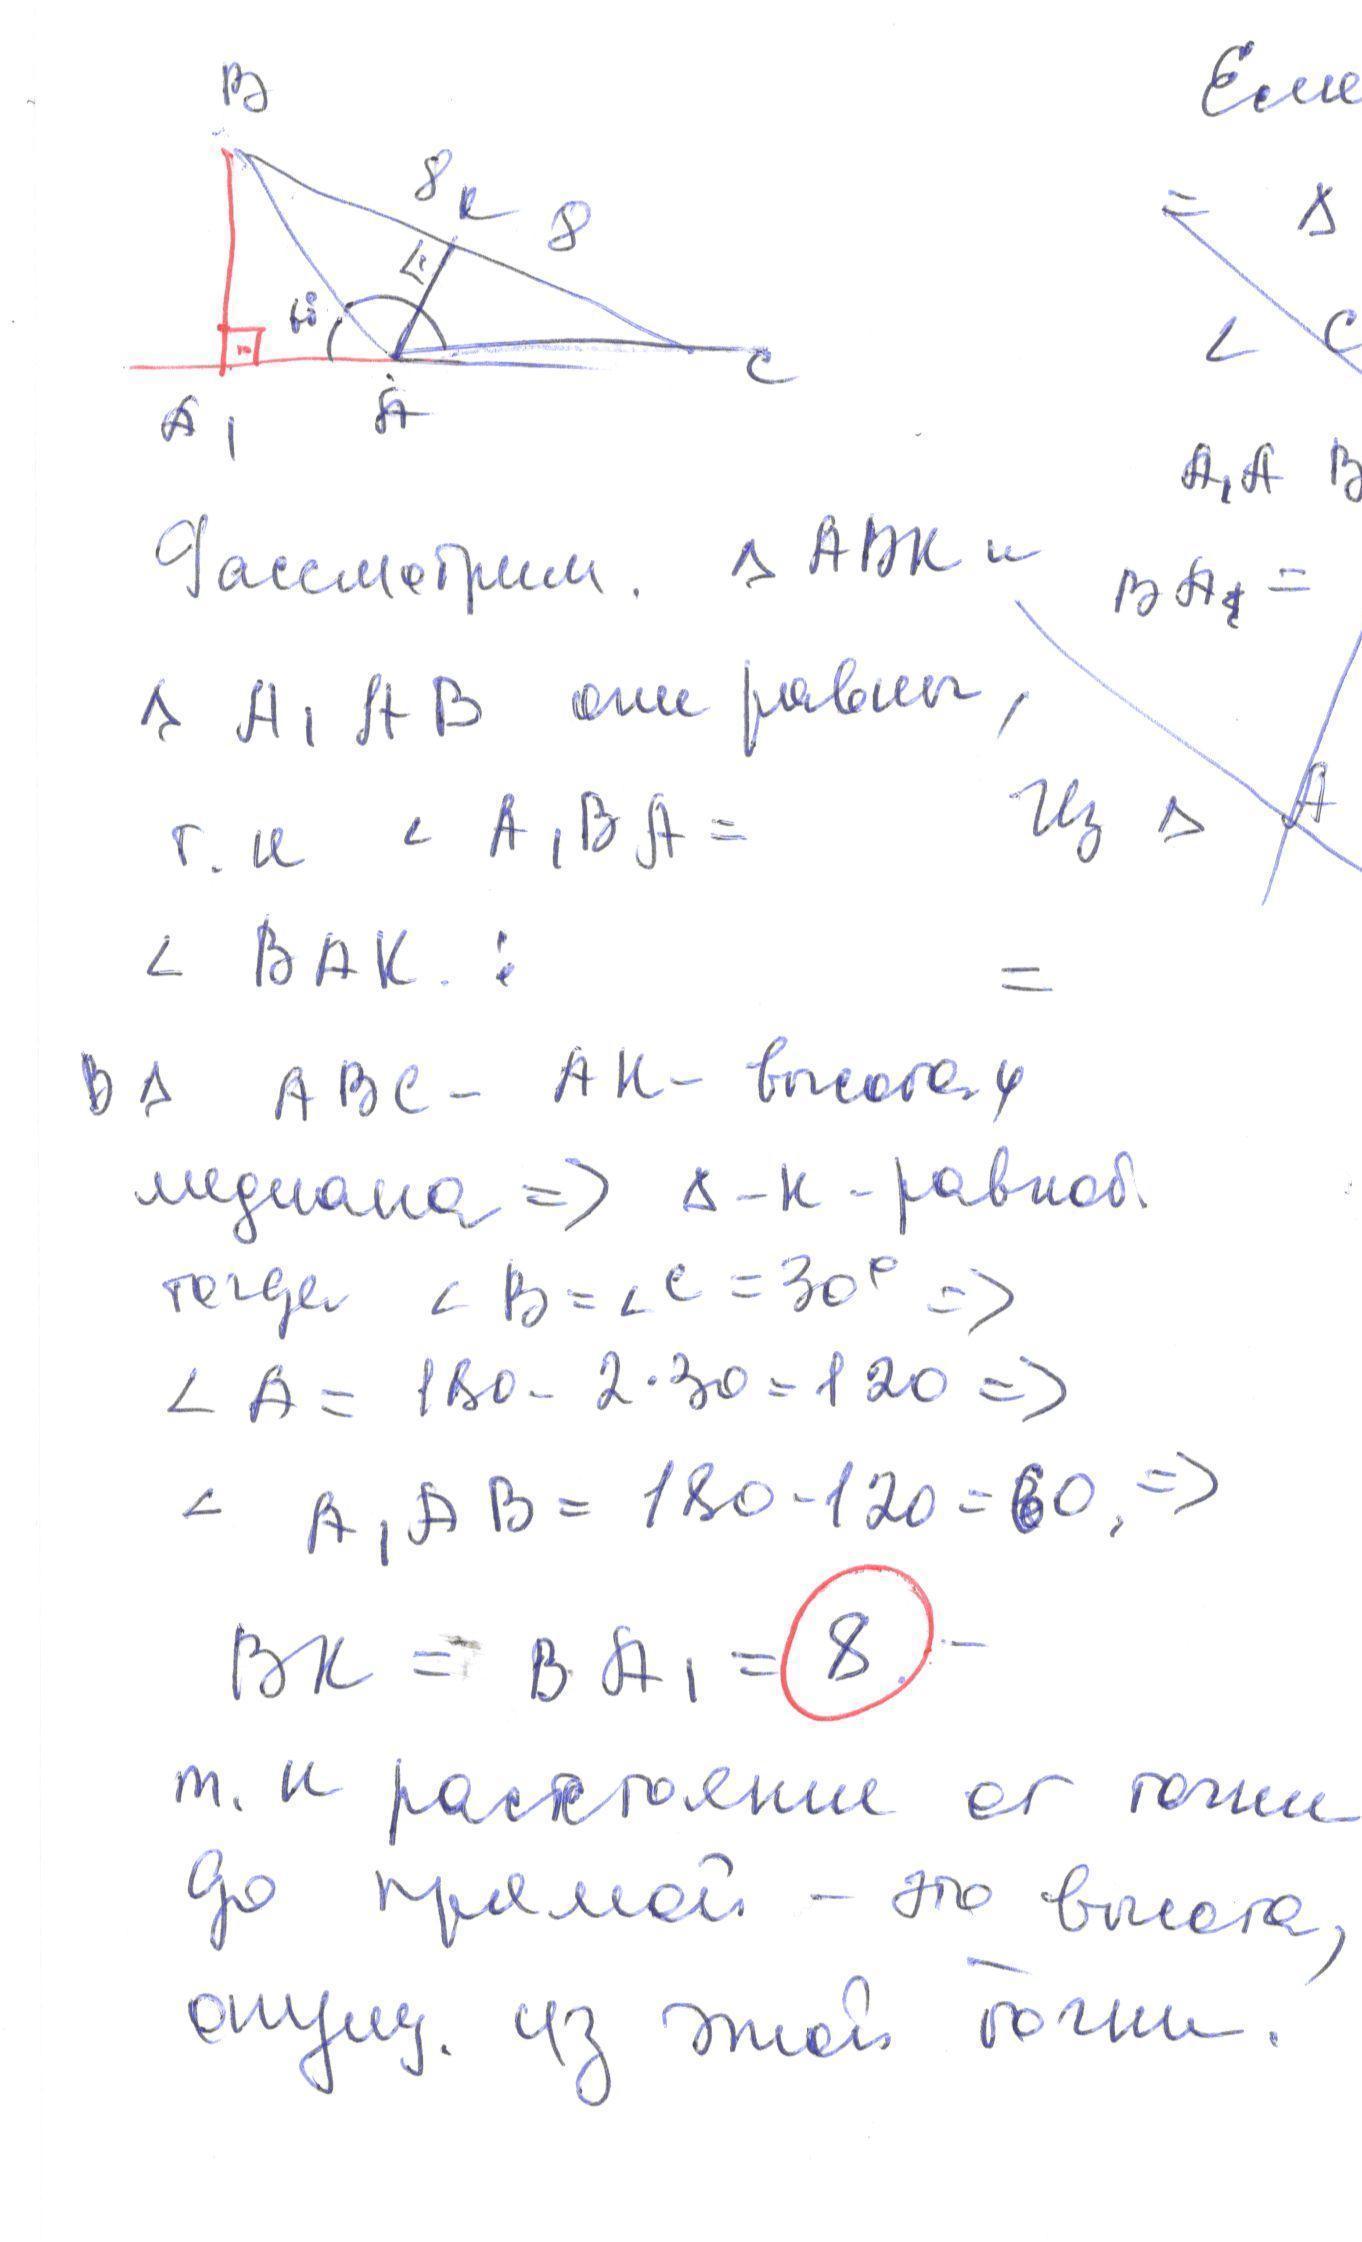 B
8
K
8
60
A1
A
C
Рассмотрим. Δ ABK и
Δ A1AB они равны,
т.к < A1BA =
< BAK. :
В Δ ABC - AK - высота и
медиана => Δ-к - равноб.
тогда < B = < C = 30° =>
< A = 180 - 2·30 = 120 =>
< A1AB = 180 - 120 = 60, =>
BK = BA1 = 8 -
т.к расстояние от точки
до прямой - это высота,
опущ. из этой точки.
= Δ
< C
A1A B
BA1 =
Из Δ A
=